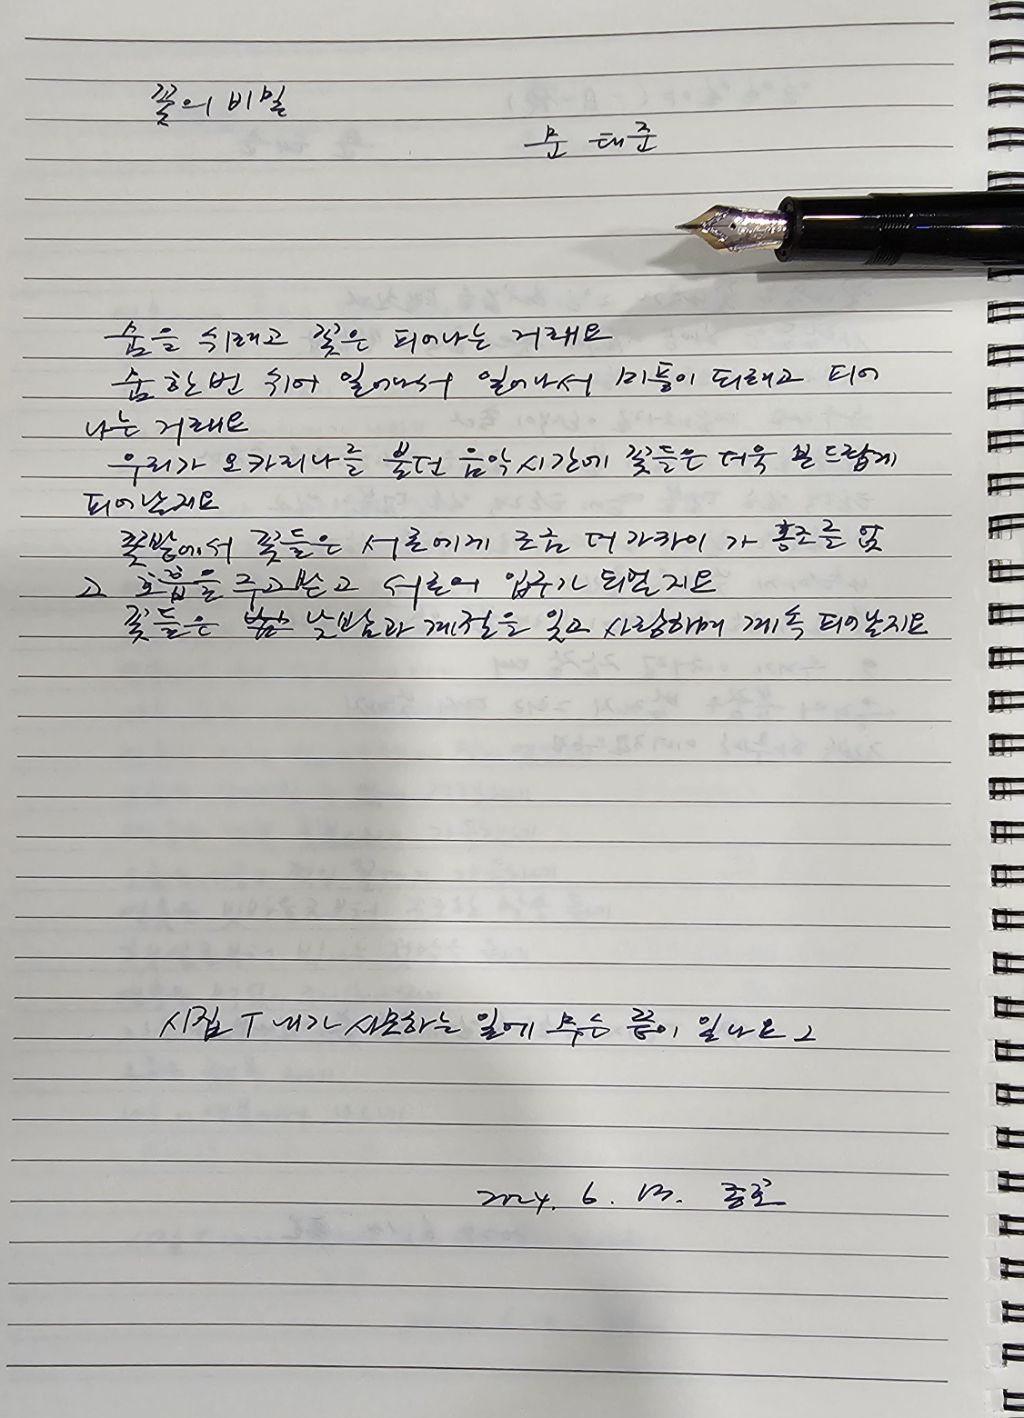 꽃의 비밀
문 태준
숨을 쉬려고 꽃은 피어나는 거래요
숨 한번 쉬어 일어나서 일어나서 미풍이 되려고 피어
나는 거래요
우리가 오카리나를 불던 음악시간에 꽃들은 더욱 부드럽게
피어날지요
꽃밭에서 꽃들은 서로에게 조금 더 가까이 가 홍조를 얹
고 호흡을 주고받고 서로의 입구가 되어줄지요
꽃들은 낮밤과 계절을 잊고 사랑하며 계속 피어날지요
시집 「내가 사모하는 일에 무슨 끝이 있나요」
2024. 6. 13. 종로